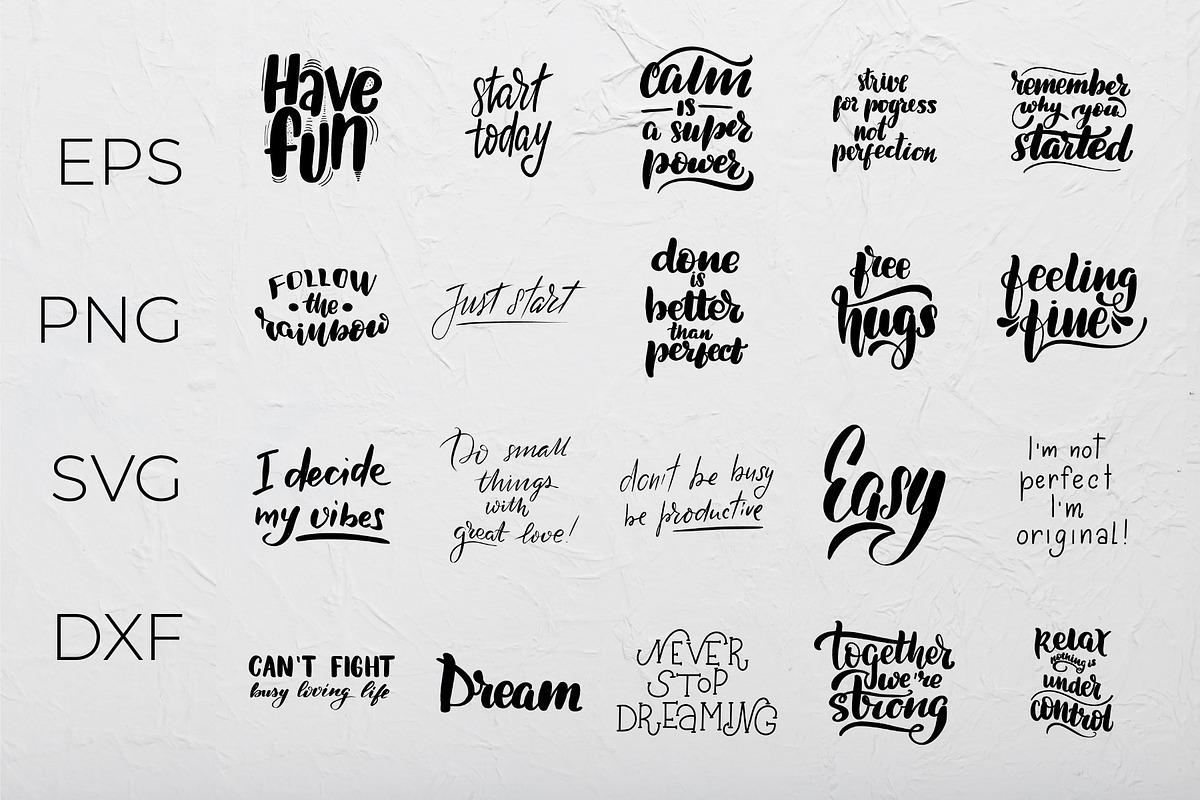 EPS
PNG
SVG
DXF
Have
fun
start
today
calm
is
a super
power
strive
for pogress
not
perfection
remember
why you
started
FOLLOW
the
rainbow
Just start
done
is
better
than
perfect
free
hugs
feeling
fine
I decide
my vibes
Do small
things
with
great love!
don't be busy
be productive
Easy
I'm not
perfect
I'm
original!
CAN'T FIGHT
busy loving life
Dream
NEVER
STOP
DREAMING
together
we're
strong
Relax
nothing is
under
control